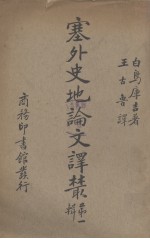 白鳥庫吉著
王古魯譯
塞外史地論文譯叢
第一輯
商務印書館發行